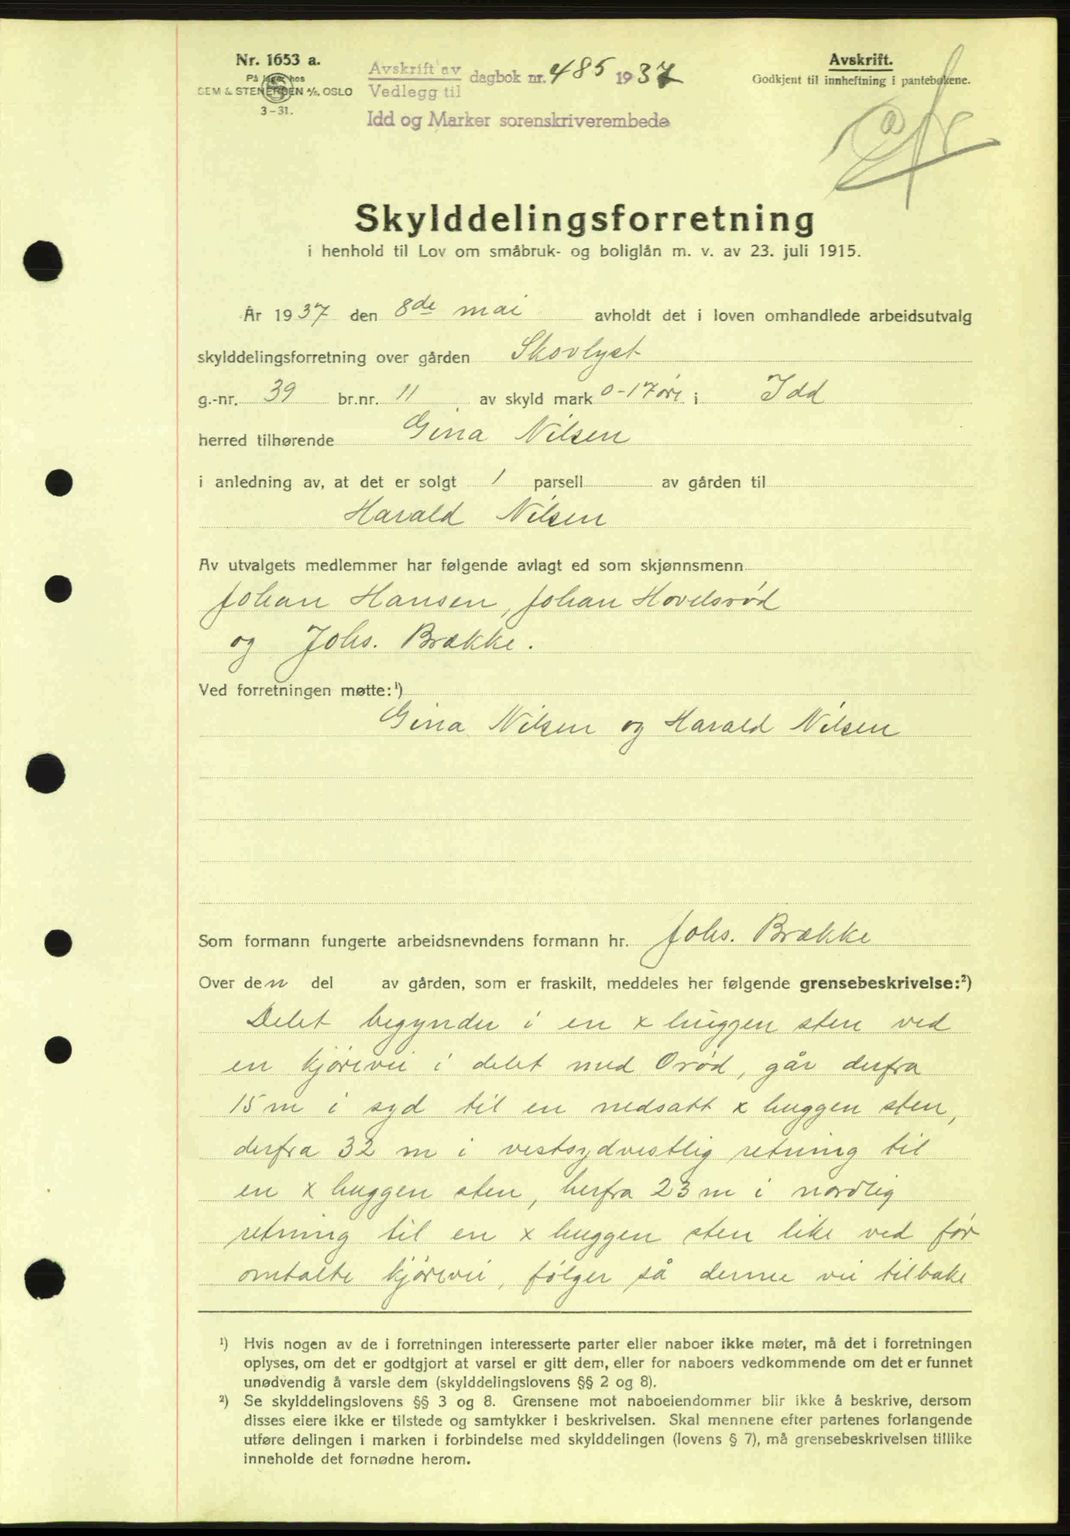 Nr. 1653 a.
På lager hos
SEM & STENERSEN A/S, OSLO
3-31.
Avskrift av
Vedlegg til
dagbok nr. 485 1937
Idd og Marker sorenskriverembede
Avskrift.
Godkjent til innheftning i pantebøkene.
Skylddelingsforretning
i henhold til Lov om småbruk- og boliglån m. v. av 23. juli 1915.
År 1937 den 8de mai avholdt det i loven omhandlede arbeidsutvalg
skylddelingsforretning over gården Skovlyst
g.-nr. 39 br.nr. 11 av skyld mark 0-17 øre i Idd
herred tilhørende Gina Nilsen
i anledning av, at det er solgt 1 parsell av gården til
Harald Nilsen
Av utvalgets medlemmer har følgende avlagt ed som skjønnsmenn
Johan Hansen, Johan Hovelsrød
og Johs. Brække.
Ved forretningen møtte:¹)
Gina Nilsen og Harald Nilsen
Som formann fungerte arbeidsnevndens formann hr. Johs. Brække
Over den del av gården, som er fraskilt, meddeles her følgende grensebeskrivelse:²)
Delet begynder i en x huggen sten ved
en kjørevei i delet med Orød, går derfra
15 m i syd til en nedsatt x huggen sten,
derfra 32 m i vestsydvestlig retning til
en x huggen sten, herfra 23 m i nordlig
retning til en x huggen sten like ved før
omtalte kjørevei, følger så denne vei tilbake
¹) Hvis nogen av de i forretningen interesserte parter eller naboer ikke møter, må det i forretningen
oplyses, om det er godtgjort at varsel er gitt dem, eller for naboers vedkommende om det er funnet
unødvendig å varsle dem (skylddelingslovens §§ 2 og 8).
²) Se skylddelingslovens §§ 3 og 8. Grensene mot naboeiendommer blir ikke å beskrive, dersom
disses eiere ikke er tilstede og samtykker i beskrivelsen. Skal mennene efter partenes forlangende
utføre delingen i marken i forbindelse med skylddelingen (lovens § 7), må grensebeskrivelsen tillike
inneholde det fornødne herom.